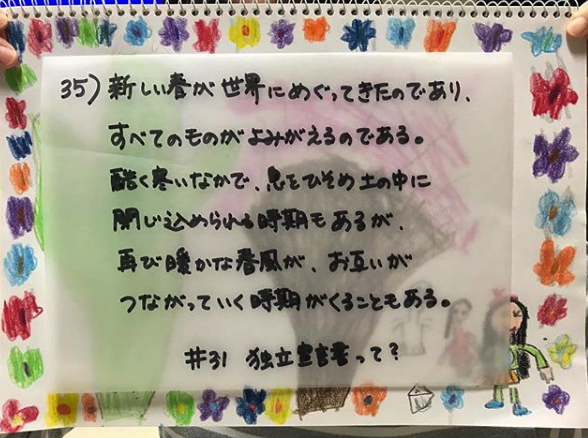 35) 新しい春が世界にめぐってきたのであり、
すべてのものがよみがえるのである。
酷く寒いなかで、息をひそめ土の中に
閉じ込められる時期もあるが、
再び暖かな春風が、お互いが
つながっていく時期がくることもある。
#31 独立宣言書って?